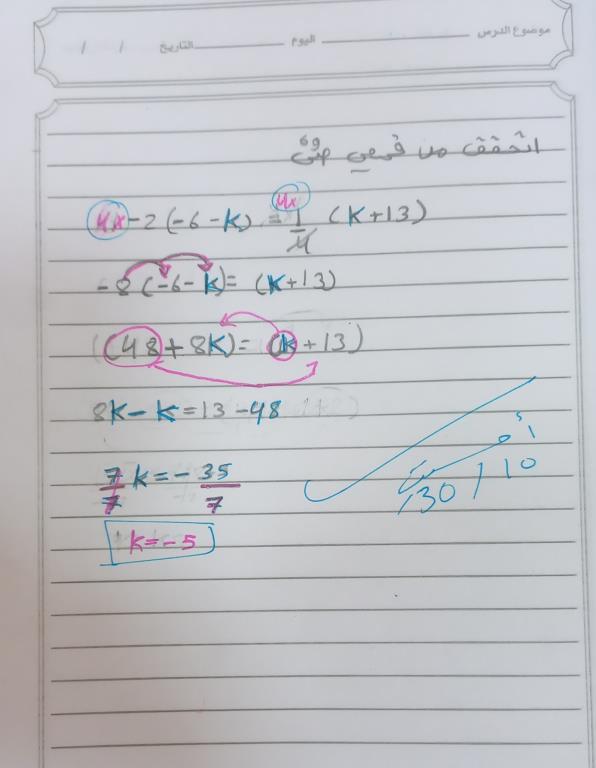 موضوع الدرس اليوم التاريخ / /
اتحقق من فهمي ص69
4x -2(-6-k) = 4x 1/4 (k+13)
-8(-6-k)= (k+13)
(48+8k)= (k+13)
8k-k=13-48
7/7 k=- 35/7
k=-5
30/10